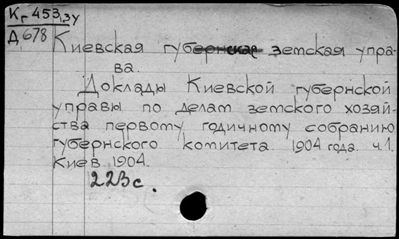 Кг 453,3у
Д 678
Киевская губернская земская упра-
ва.
Доклады Киевской губернской
управы по делам земского хозяй-
ства первому годичному собранию
губернского комитета 1904 года. ч.1.
Киев 1904.
223с.